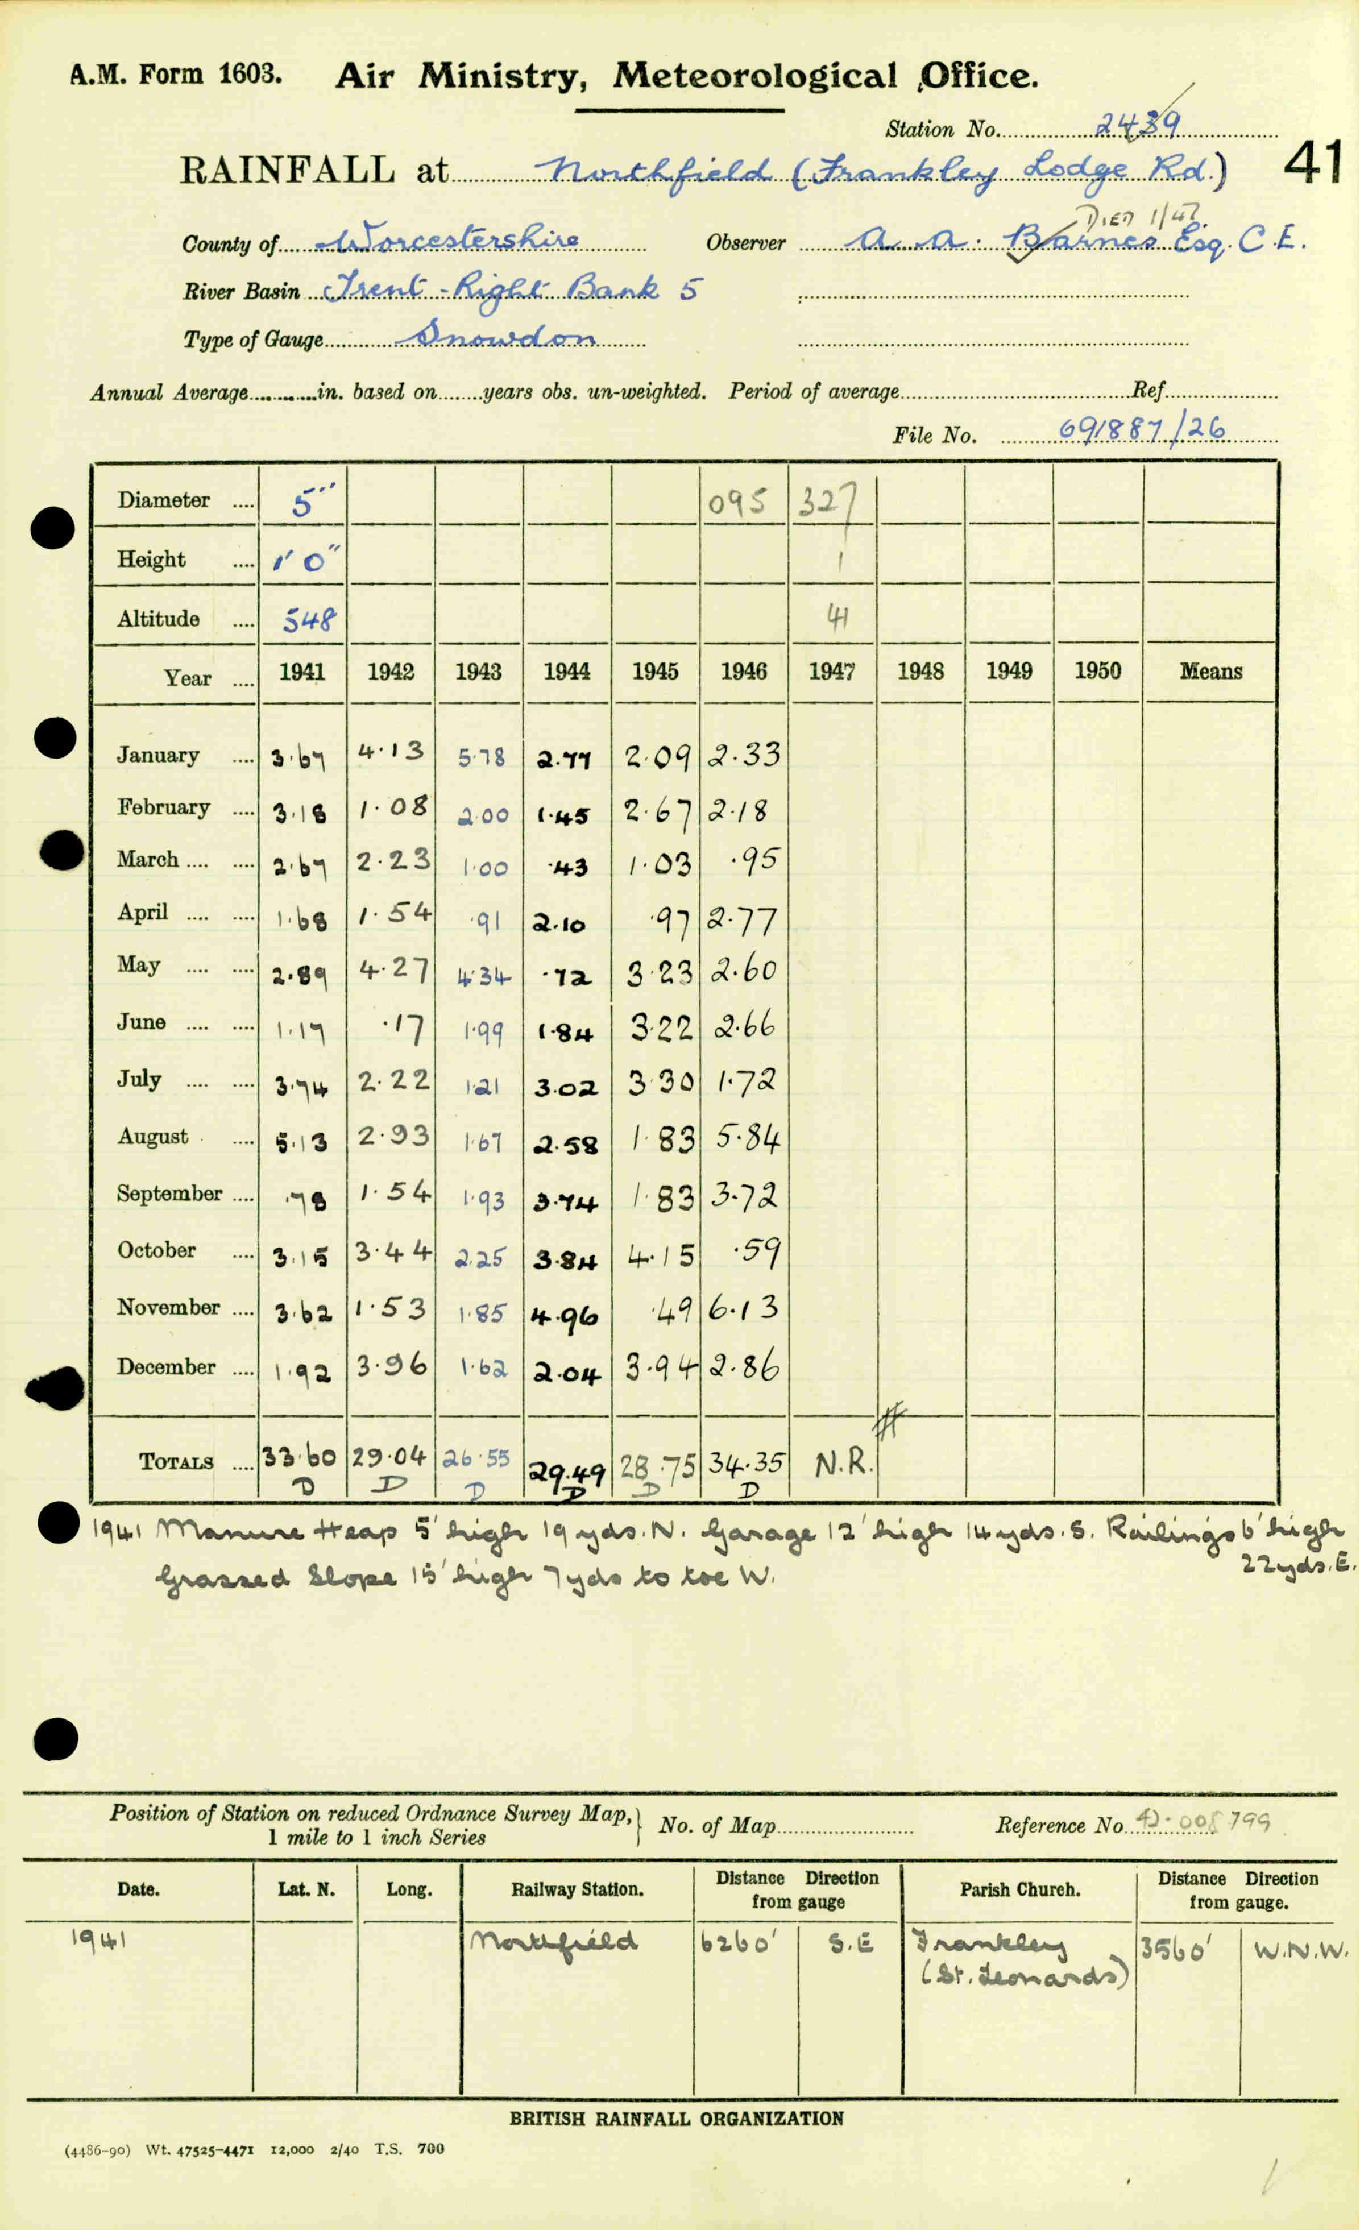 A.M. Form 1603. Air Ministry, Meteorological Office.
Station No. 2439
RAINFALL at Northfield (Frankley Lodge Rd.) 41
DIED 1/47
County of Worcestershire Observer A. A. Barnes Esq. C.E.
River Basin Trent - Right Bank 5
Type of Gauge Snowdon
Annual Average in. based on years obs. un-weighted. Period of average Ref.
File No. 691887/26
Diameter .... 5" 095 327
Height .... 1' 0" 1
Altitude .... 548 41
Year .... 1941 1942 1943 1944 1945 1946 1947 1948 1949 1950 Means
January .... 3.67 4.13 5.78 2.77 2.09 2.33
February .... 3.18 1.08 2.00 1.45 2.67 2.18
March .... .... 2.67 2.23 1.00 .43 1.03 .95
April .... .... 1.68 1.54 .91 2.10 .97 2.77
May .... .... 2.89 4.27 4.34 .72 3.23 2.60
June .... .... 1.17 .17 1.99 1.84 3.22 2.66
July .... .... 3.74 2.22 1.21 3.02 3.30 1.72
August .... 5.13 2.93 1.67 2.58 1.83 5.84
September .... .78 1.54 1.93 3.74 1.83 3.72
October .... 3.15 3.44 2.25 3.84 4.15 .59
November .... 3.62 1.53 1.85 4.96 .49 6.13
December .... 1.92 3.96 1.62 2.04 3.94 2.86
TOTALS .... 33.60 29.04 26.55 29.49 28.75 34.35 N.R.
D D D D D D
1941 Manure Heap 5' high 19 yds. N. Garage 12' high 14 yds. S. Railings 6' high
22 yds. E.
Grassed Slope 15' high 7 yds to toe W.
Position of Station on reduced Ordnance Survey Map,
1 mile to 1 inch Series
No. of Map Reference No. 42.008799
Date. Lat. N. Long. Railway Station. Distance Direction from gauge Parish Church. Distance Direction from gauge.
1941 Northfield 6260' S.E Frankley 3560' W.N.W.
(St. Leonards)
BRITISH RAINFALL ORGANIZATION
(4486-90) Wt. 47525-4471 12,000 2/40 T.S. 700